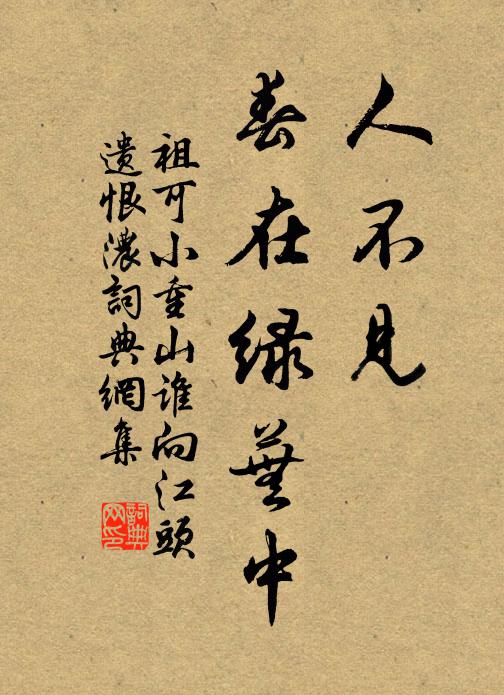 人不見
春在綠蕪中
祖可小重山誰向江頭
遺恨濃詞典網集
詞典
网印